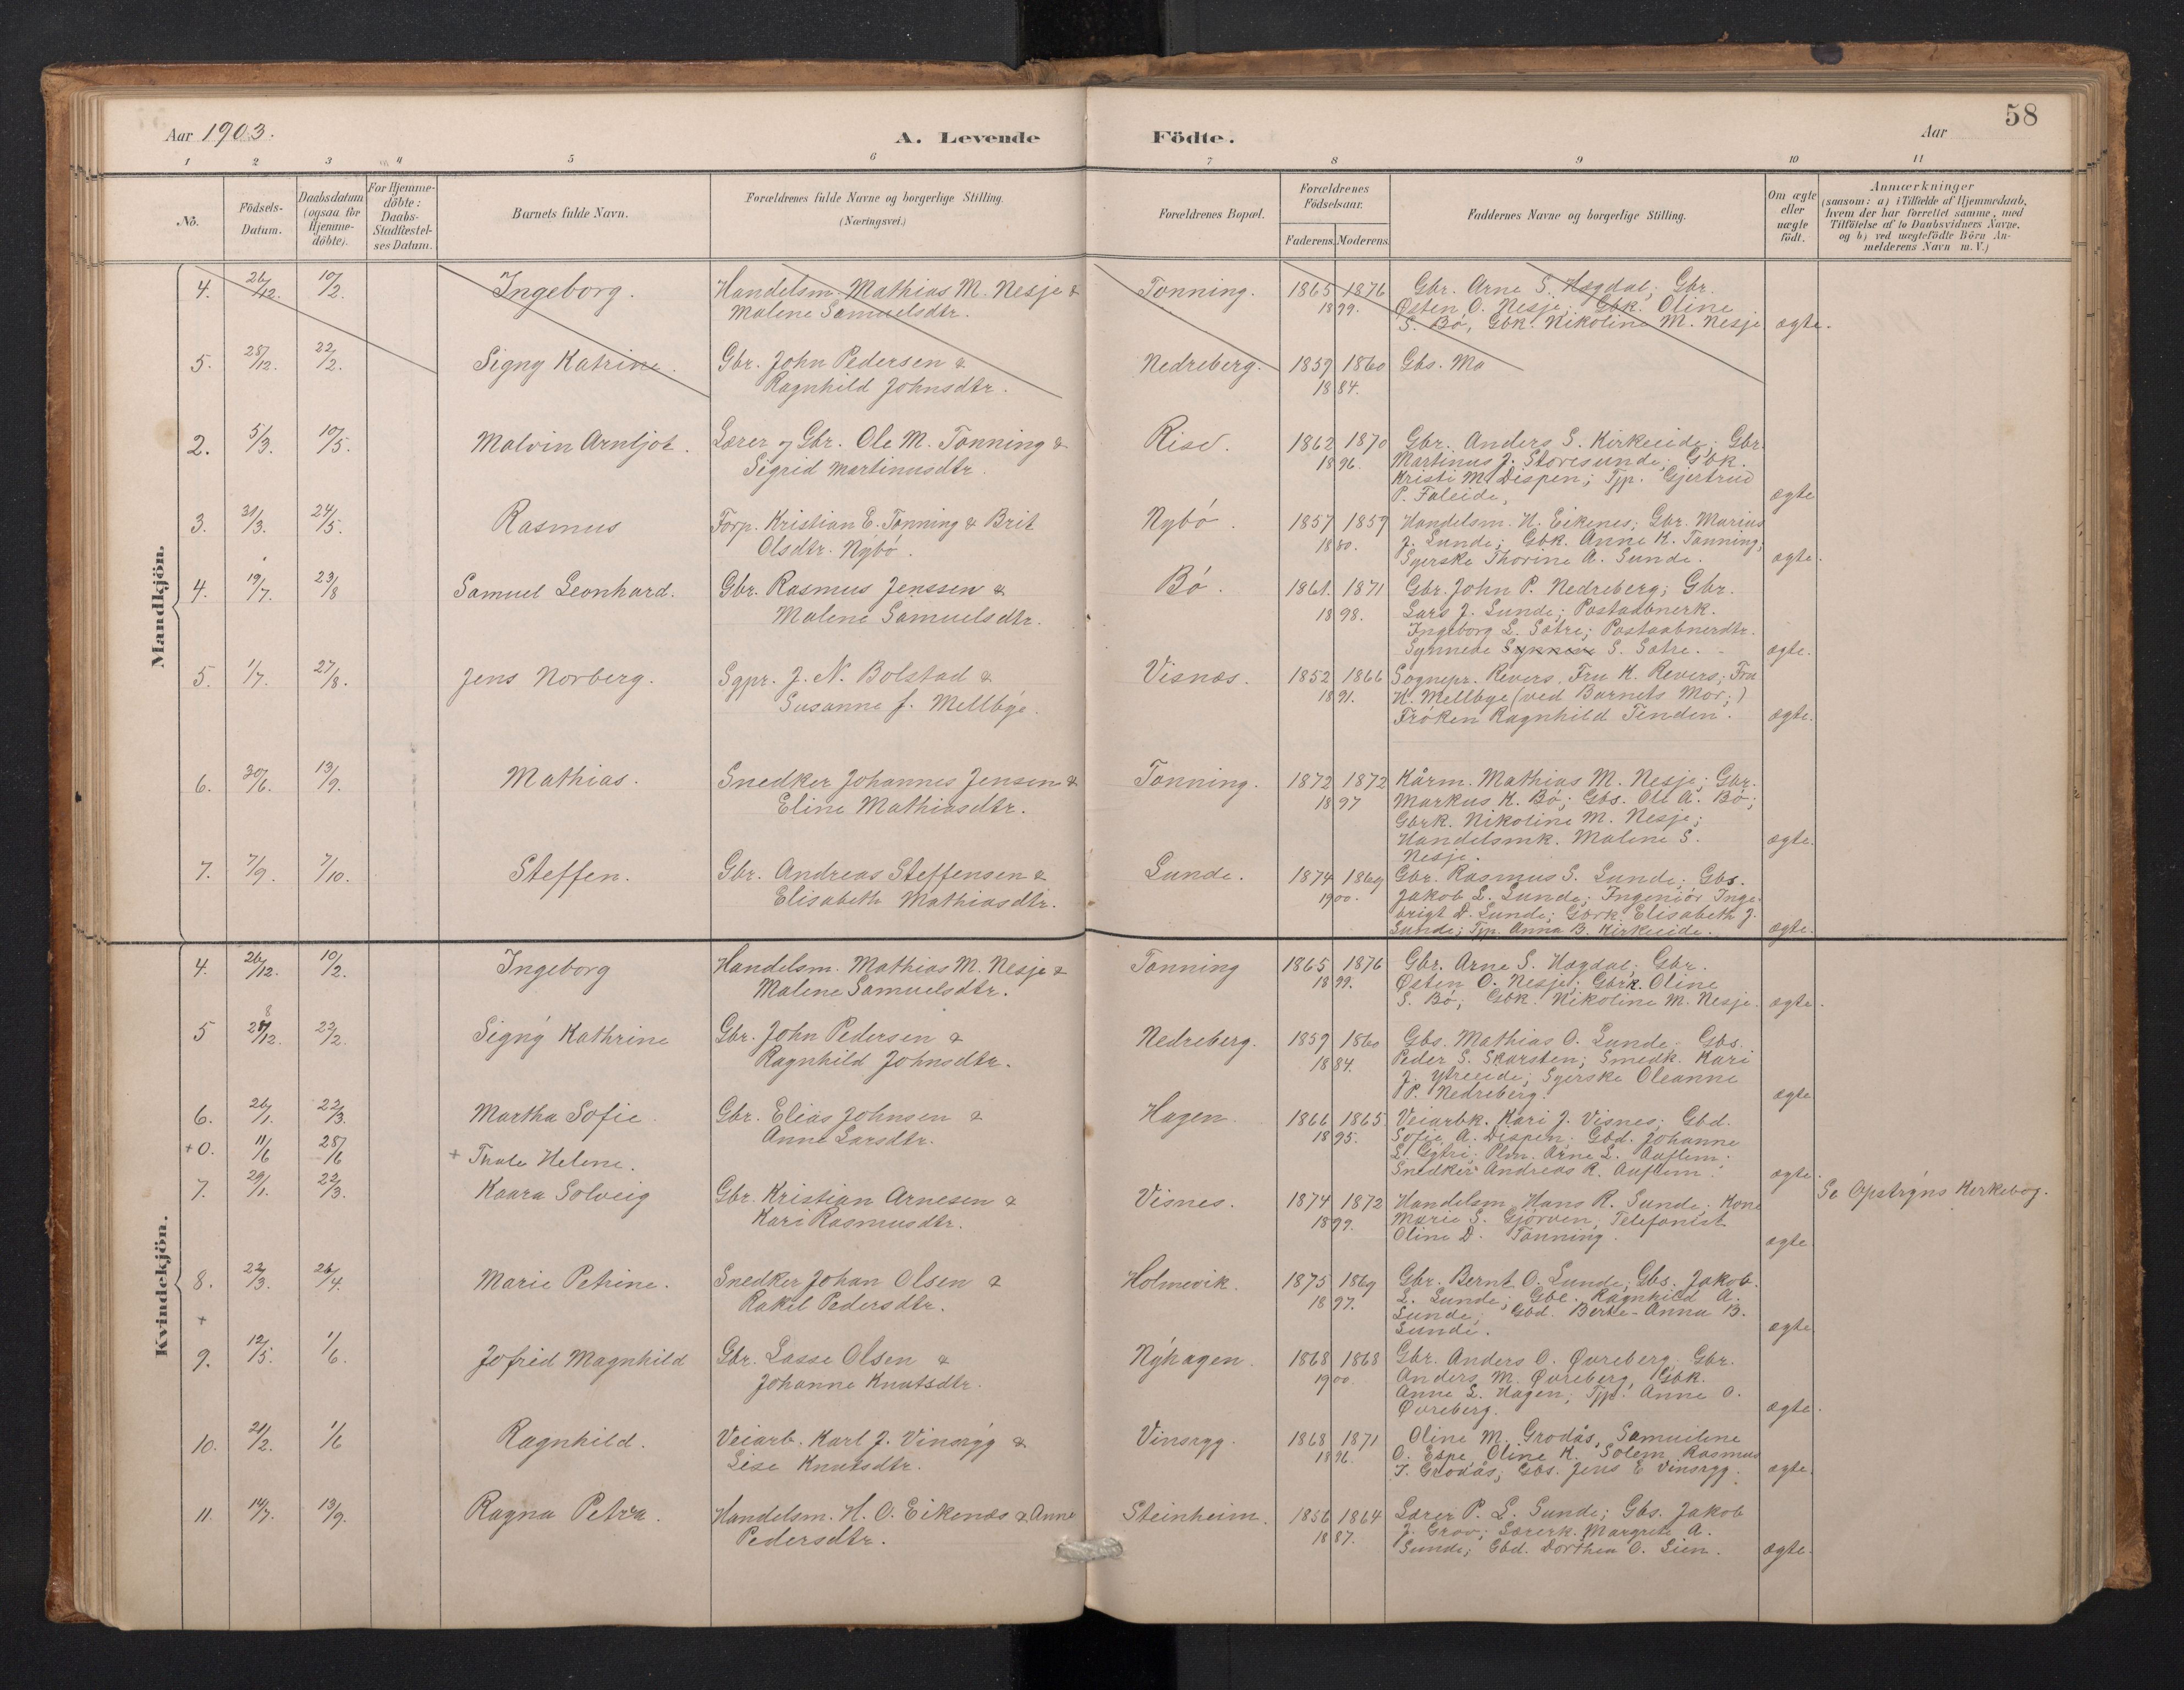 58
Aar 1903. A. Levende Födte. Aar
1 2 3 4 5 6 7 8 9 10 11
No. Födsels-Datum. Daabsdatum (ogsaa for Hjemme-döbte). For Hjemme-döbte: Daabs-Stadfæstel-ses Datum. Barnets fulde Navn. Forældrenes fulde Navne og borgerlige Stilling. (Næringsvei.) Forældrenes Bopæl. Forældrenes Födselsaar. Faderens. Moderens. Faddernes Navne og borgerlige Stilling. Om ægte eller uægte födt. Anmærkninger (saasom: a) i Tilfælde af Hjemmedaab, hvem der har forrettet samme, med Tilföielse af to Daabsvidners Navne, og b) ved uægtefödte Börn An-melderens Navn m.V.)
Mandkjön.
4. 26/12. 10/2. Ingeborg. Handelsm. Mathias M. Nesje & Tonning. 1865 1876 Gbr. Arne S. Hægdal; Gbr.
Malene Samuelsdtr. 1899. Østen O. Nesje; Gbk. Oline
S. Bö, Gbk. Nikoline M. Nesje ægte.
5. 28/12. 22/2. Signy Katrine. Gbr. John Pedersen & Nedreberg. 1859 1860 Gbs. Ma
Ragnhild Johnsdtr. 1884.
2. 5/3. 10/5. Malvin Arntjot. Lærer og Gbr. Ole M. Tonning & Rise. 1862 1870 Gbr. Anders S. Kirkeeide; Gbr.
Sigrid Martinusdtr. 1896. Martinus J. Storesunde; Gbk.
Kristi M. Dispen; Tjp. Gjertrud
P. Faleide, ægte
3. 31/3. 24/5. Rasmus Forp. Kristian E. Tonning & Brit Nybö. 1857 1859 Handelsm. H. Eikenes; Gbr. Marius
Olsdtr. Nybö. 1880. J. Sunde; Gbk. Anne K. Tonning;
Syerske Thorine A. Sunde. ægte.
4. 19/7. 23/8 Samuel Leonhard. Gbr. Rasmus Jenssen & Bö. 1861. 1871 Gbr. John P. Nedreberg; Gbr.
Malene Samuelsdtr. 1898. Lars J. Sunde; Postaabnerk.
Ingeborg L. Sætre; Postaabnerdtr.
Synneve S. Sætre. ægte.
5. 1/7. 27/8. Jens Norberg. Sgpr. J. N. Bolstad & Visnæs. 1852 1866 Sognepr. Revers, Fru K. Revers; Fru
Susanne f. Mellbye. 1891. K. Mellbye (ved Barnets Mor;)
Fröken Ragnhild Tenden. ægte.
6. 30/6. 13/9. Mathias. Snedker Johannes Jensen & Tonning. 1872 1872 Kårm. Mathias M. Nesje; Gbr.
Eline Mathiasdtr. 1897 Markus K. Bö; Gbs. Ole A. Bö;
Gbrk. Nikoline M. Nesje;
Handelsmk. Malene S. ægte.
Nesje.
7. 7/9. 7/10. Steffen. Gbr. Andreas Steffensen & Lunde. 1874 1869 Gbr. Rasmus S. Lunde; Gbs.
Elisabeth Mathiasdtr. 1900. Jakob L. Lunde; Ingeniör Inge-
brigt D. Lunde; Gbrk. Elisabeth J.
Sunde; Tjp. Anna B. Kirkeeide. ægte.
Kvindekjön.
4. 26/12. 10/2. Ingeborg Handelsm. Mathias M. Nesje & Tonning 1865 1876 Gbr. Arne S. Hægdal; Gbr.
Malene Samuelsdtr. 1899. Østen O. Nesje; Gbrk. Oline
S. Bö; Gbk. Nikoline M. Nesje. ægte.
5 28/12. 22/2. Signy Kathrine Gbr. John Pedersen & Nedreberg. 1859 1860 Gbs. Mathias O. Lunde. Gbs.
Ragnhild Johnsdtr. 1884. Peder S. Skarsten; Smedk. Kari
J. Ytreeide; Syerske Oleanne
P. Nedreberg. ægte
6. 26/1. 22/3. Martha Sofie. Gbr. Elias Johnsen & Hagen. 1866 1865 Veiarbk. Kari J. Visnes; Gbd.
Anne Larsdtr. 1895. Sofie A. Dispen; Gbd. Johanne
+0. 11/6 28/6 + Thale Helene. L. Gytri; Plm. Arne L. Auflem;
Snedker Andreas R. Auflem. ægte.
7. 29/1. 22/3. Kaara Solveig Gbr. Kristian Arnesen & Visnes. 1874 1872 Handelsm. Hans R. Sunde; Kone Se Opstryns Kirkebog.
Kari Rasmusdtr. 1899. Marie S. Gjörven, Telefonist
Oline D. Tonning. ægte
8. 22/3. 26/4. Marie Petrine. Snedker Johan Olsen & Holmevik. 1875 1869 Gbr. Bernt O. Lunde; Gbs. Jakob
Rakel Pedersdtr. 1897. L. Lunde; Gbe. Ragnhild A.
+ Lunde; Gbd. Berte-Anna B.
Lunde. ægte
9. 12/5. 1/6. Jofrid Magnhild Gbr. Lasse Olsen & Nyhagen. 1868 1868 Gbr. Anders O. Øvreberg, Gbr.
Johanne Knutsdtr. 1900. Anders M. Øvreberg, Gbk.
Anne L. Hagen; Tjp. Anne O.
Øvreberg. ægte.
10. 21/2. 1/6 Ragnhild. Veiarb. Karl J. Vinsrygg & Vinsrygg. 1868 1871 Oline M. Grodås, Samueline
Lise Knutsdtr. 1896. O. Espe, Oline K. Solem, Rasmus
T. Grodås; Gbs. Jens E Vinsrygg. ægte.
11. 14/7. 13/9. Ragna Petra. Handelsm. H. O. Eikenæs & Anne Steinheim. 1856 1864 Lærer P. L. Sunde; Gbs. Jakob
Pedersdtr. 1887. J. Grov; Lærerk. Margrete A.
Sunde; Gbd. Dorthea O. Lien. ægte.